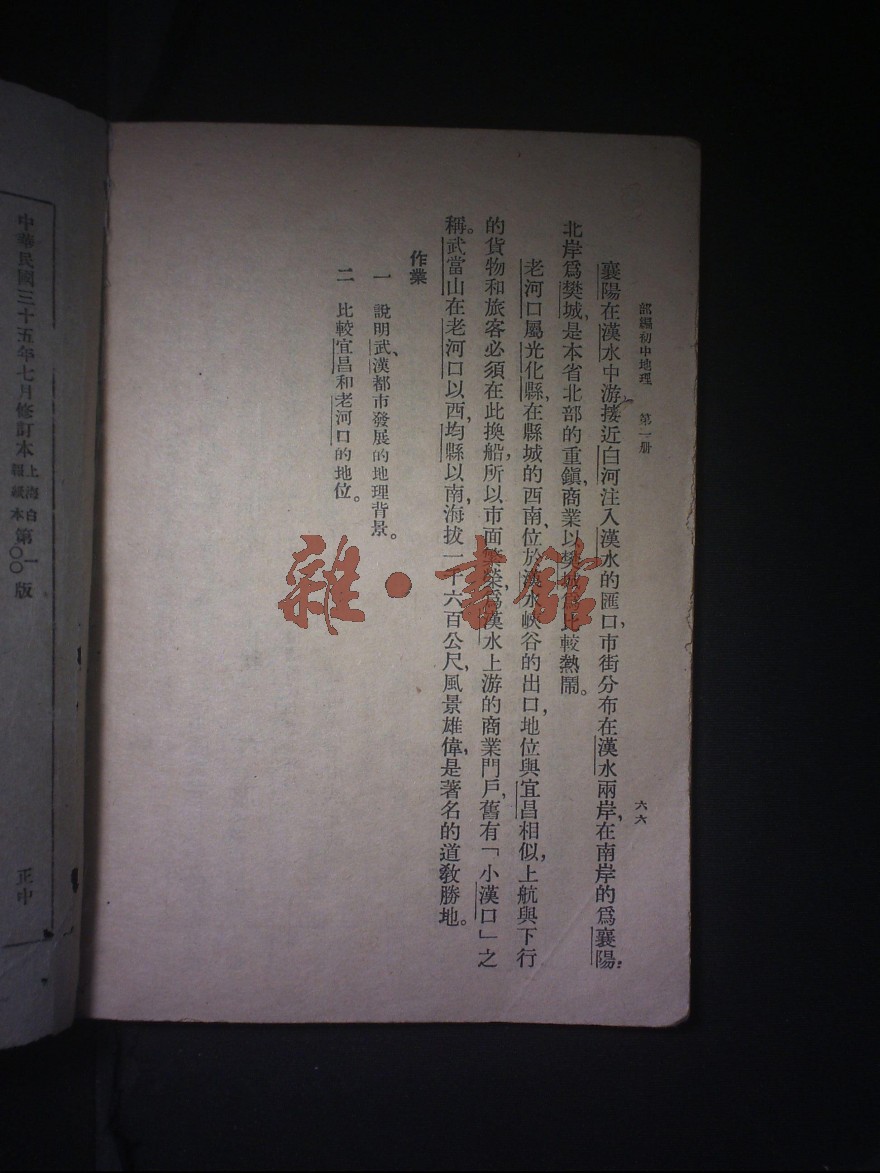 部編初中地理　第一册
六六
襄陽在漢水中游，接近白河注入漢水的匯口，市街分布在漢水兩岸，在南岸的爲襄陽，
北岸爲樊城，是本省北部的重鎮，商業以樊城爲比較熱鬧。
老河口屬光化縣，在縣城的西南，位於漢水峽谷的出口，地位與宜昌相似，上航與下行
的貨物和旅客必須在此換船，所以市面繁榮，爲漢水上游的商業門戶，舊有「小漢口」之
稱。武當山在老河口以西，均縣以南，海拔一千六百公尺，風景雄偉，是著名的道教勝地。
作業
一　說明武、漢都市發展的地理背景。
二　比較宜昌和老河口的地位。
雜·書館
中華民國三十五年七月修訂本
上海白
報紙本
第一〇〇版
正中